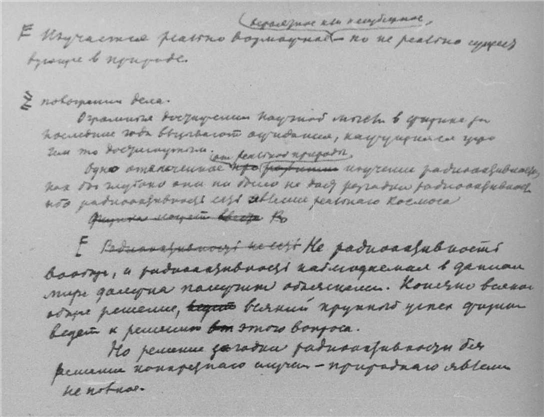 Изучается реально возможное – но не реально сущест
вующее в природе.
поворотами дела.
Огромные достижения научной мысли в физике за
последние годы вызывают ожидания,
чем то достигнутым.
от реальной природы
Одно отвлеченное изучение радиоактивности,
как бы глубоко оно ни было не даст разгадки радиоактивност
ибо радиоактивность есть явление реального Космоса
Радиоактивность не есть Не радиоактивность
вообще, а радиоактивность наблюдаемая в данном
мире должна получить объяснение. Конечно всякое
общее решение, ведет всякий крупный успех физики
ведет к решению этого вопроса.
Но решение загадки радиоактивности без
решения конкретного случая – природного явления
не полное.